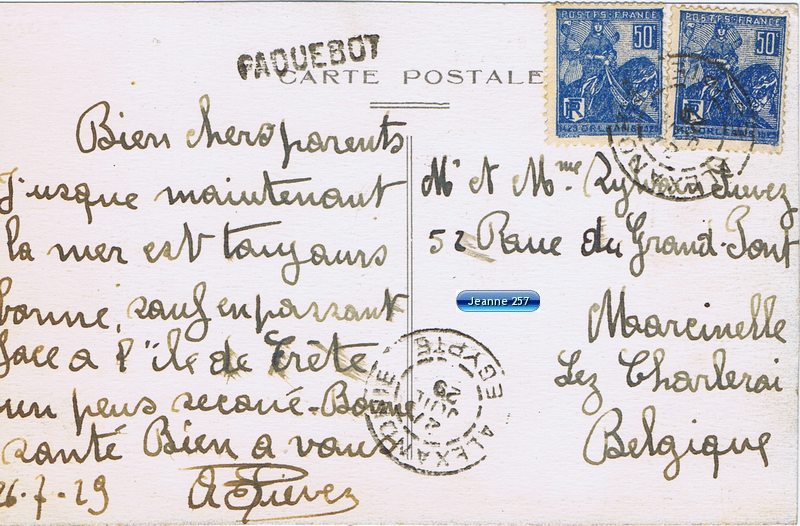 PAQUEBOT
CARTE POSTALE
POSTES FRANCE
50c
1429 ORLEANS 1929
POSTES FRANCE
50c
ORLEANS
Bien chers parents
Jusque maintenant
la mer est toujours
bonne, sauf en passant
face a l'île de Crête
un peus secoué. Bonne
santé Bien a vous
26-7-29
Mr et Mme
52 Raue du Grand-Pont
Marcinelle
Lez Charleroi
Belgique
Jeanne 257
ALEXANDRIE
EGYPTE
27 JUIL 29